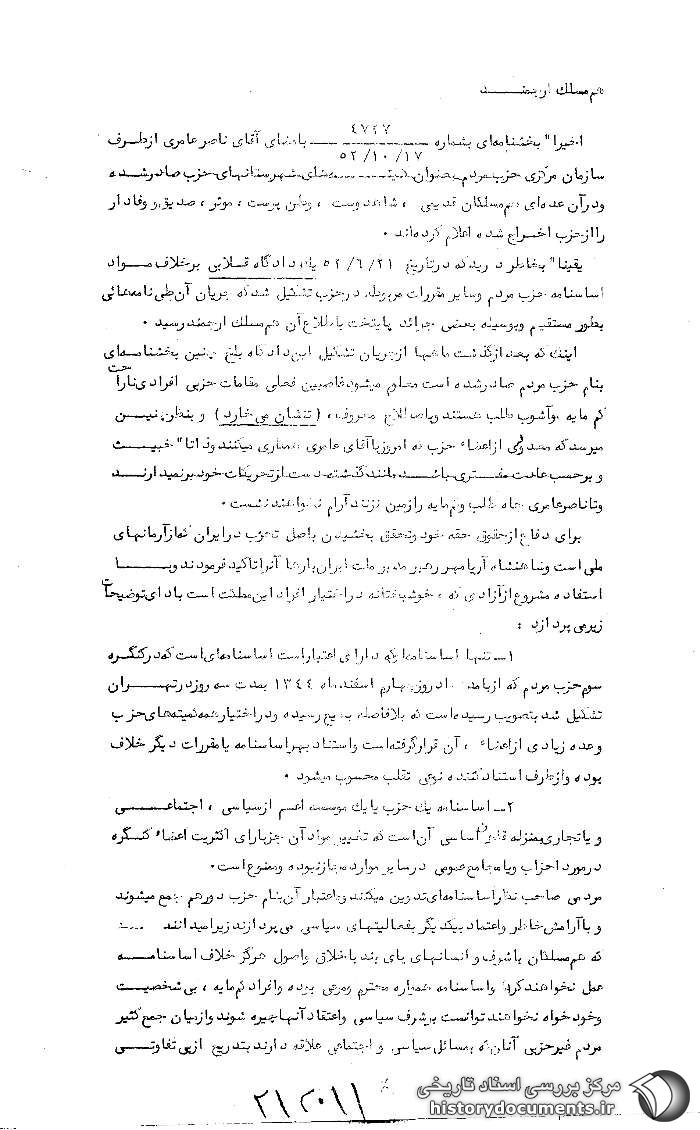 هم مسلك ارجمنـــــد
اخیرا" بخشنامه‌ای بشماره ۴۷۲۷ بامضای آقای ناصر عامری از طرف
۵۲/۱۰/۱۷
سازمان مرکزی حزب مردم بعنوان کمیتـــه‌های شهرستانهای حزب صادر شـده
و در آن عده‌ای هم‌مسلکان قدیمی ، شاهدوست ، وطن پرست ، موثر ، صدیق و وفادار
را از حزب اخراج شده اعلام کرده‌اند ۰
یقینا" بخاطر دارید که در تاریخ ۵۲/۶/۲۱ یك دادگاه قـلابی برخلاف مـواد
اساسنامه حزب مردم و سایر مقررات مربوطه در حزب تشکیل شد که جریان آن طی نامه‌هائی
بطور مستقیم و بوسیله بعضی جرائد پایتخت باطلاع آن هم مسلك ارجمند رسید ۰
اینك که بعد از گذشت ماهها از جریان تشکیل این دادگاه بلخ چنین بخشنامه‌ای
بنام حزب مردم صادر شده است معلوم میشود غاصبین فعلی مقامات حزبی افرادی ناراحت
کم مایه و آشوب طلب هستند و باصطلاح معروف ، ( تنشان می‌خارد ) و بنظر چنیـن
میرسد که معدودی از اعضاء حزب که امروز با آقای عامری همکاری میکنند و ذاتا" خبیـث
و بر حسب عادت مفـتری باشنـد مانند گذشته دست از تحریکات خود بر نمیدارنـد
و تا ناصر عامری جاه طلب و کم مایه را زمین نزنند آرام نخواهند نشست ۰
برای دفاع از حقوق حقه خود و تحقق بخشیدن باصل تحزب در ایران که از آرمانهای
ملی است و شاهنشاه آریامهر رهبر مدبر ملت ایران بارها آنرا تاکید فرمودند و بـا
استفاده مشروع از آزادی که ، خوشبختانه در اختیار افراد این مملکت است با دای توضیحات
زیر می پردازد :
۱ــ تنها اساسنامه‌ایکه دارای اعتبار است اساسنامه‌ای است که در کنگـره
سوم حزب مردم که از بامداد روز چهارم اسفند ماه ۱۳۴۴ بمدت سه روز در تهـران
تشکیل شد بتصویب رسیده است که بلافاصله بچاپ رسیده و در اختیار همه کمیته‌های حزب
و عده زیادی از اعضاء ، آن قرار گرفته است و استناد بهر اساسنامه یا مقررات دیگر خلاف
بوده و از طرف استناد کننده نوعی تقلب محسوب میشود ۰
۲ــ اساسنامه یك حزب یا یك موسسه اعم از سیاسی ، اجتماعـــی
و یا تجاری بمنزله قانون اساسی آن است که تغییر مواد آن جز با رای اکثریت اعضاء کنگره
در مورد احزاب و یا مجامع عمومی در سایر موارد مجاز نبوده و ممنوع است ۰
مردمی صاحب نظر اساسنامه‌ای تدوین میکنند و باعتبار آن بنام حزب دور هم جمع میشوند
و با آرامش خاطر و اعتماد بیکدیگر بفعالیتهای سیاسی می پردازند زیرا میدانند
که هم‌مسلکان باشرف و انسانهای پای بند باخلاق و اصول هرگز خلاف اساسنامـه
عمل نخواهند کرد و اساسنامه همواره محترم و مرعی بوده و افراد کم مایه ، بی شخصیت
و خود خواه نخواهند توانست بر شرف سیاسی و اعتقاد آنها چیره شوند و از میان جمع کثیر
مردم غیر حزبی آنان که بمسائل سیاسی و اجتماعی علاقه دارند بتدریج از بی تفاوتـی
مرکز بررسی اسناد تاریخی
historydocuments.ir